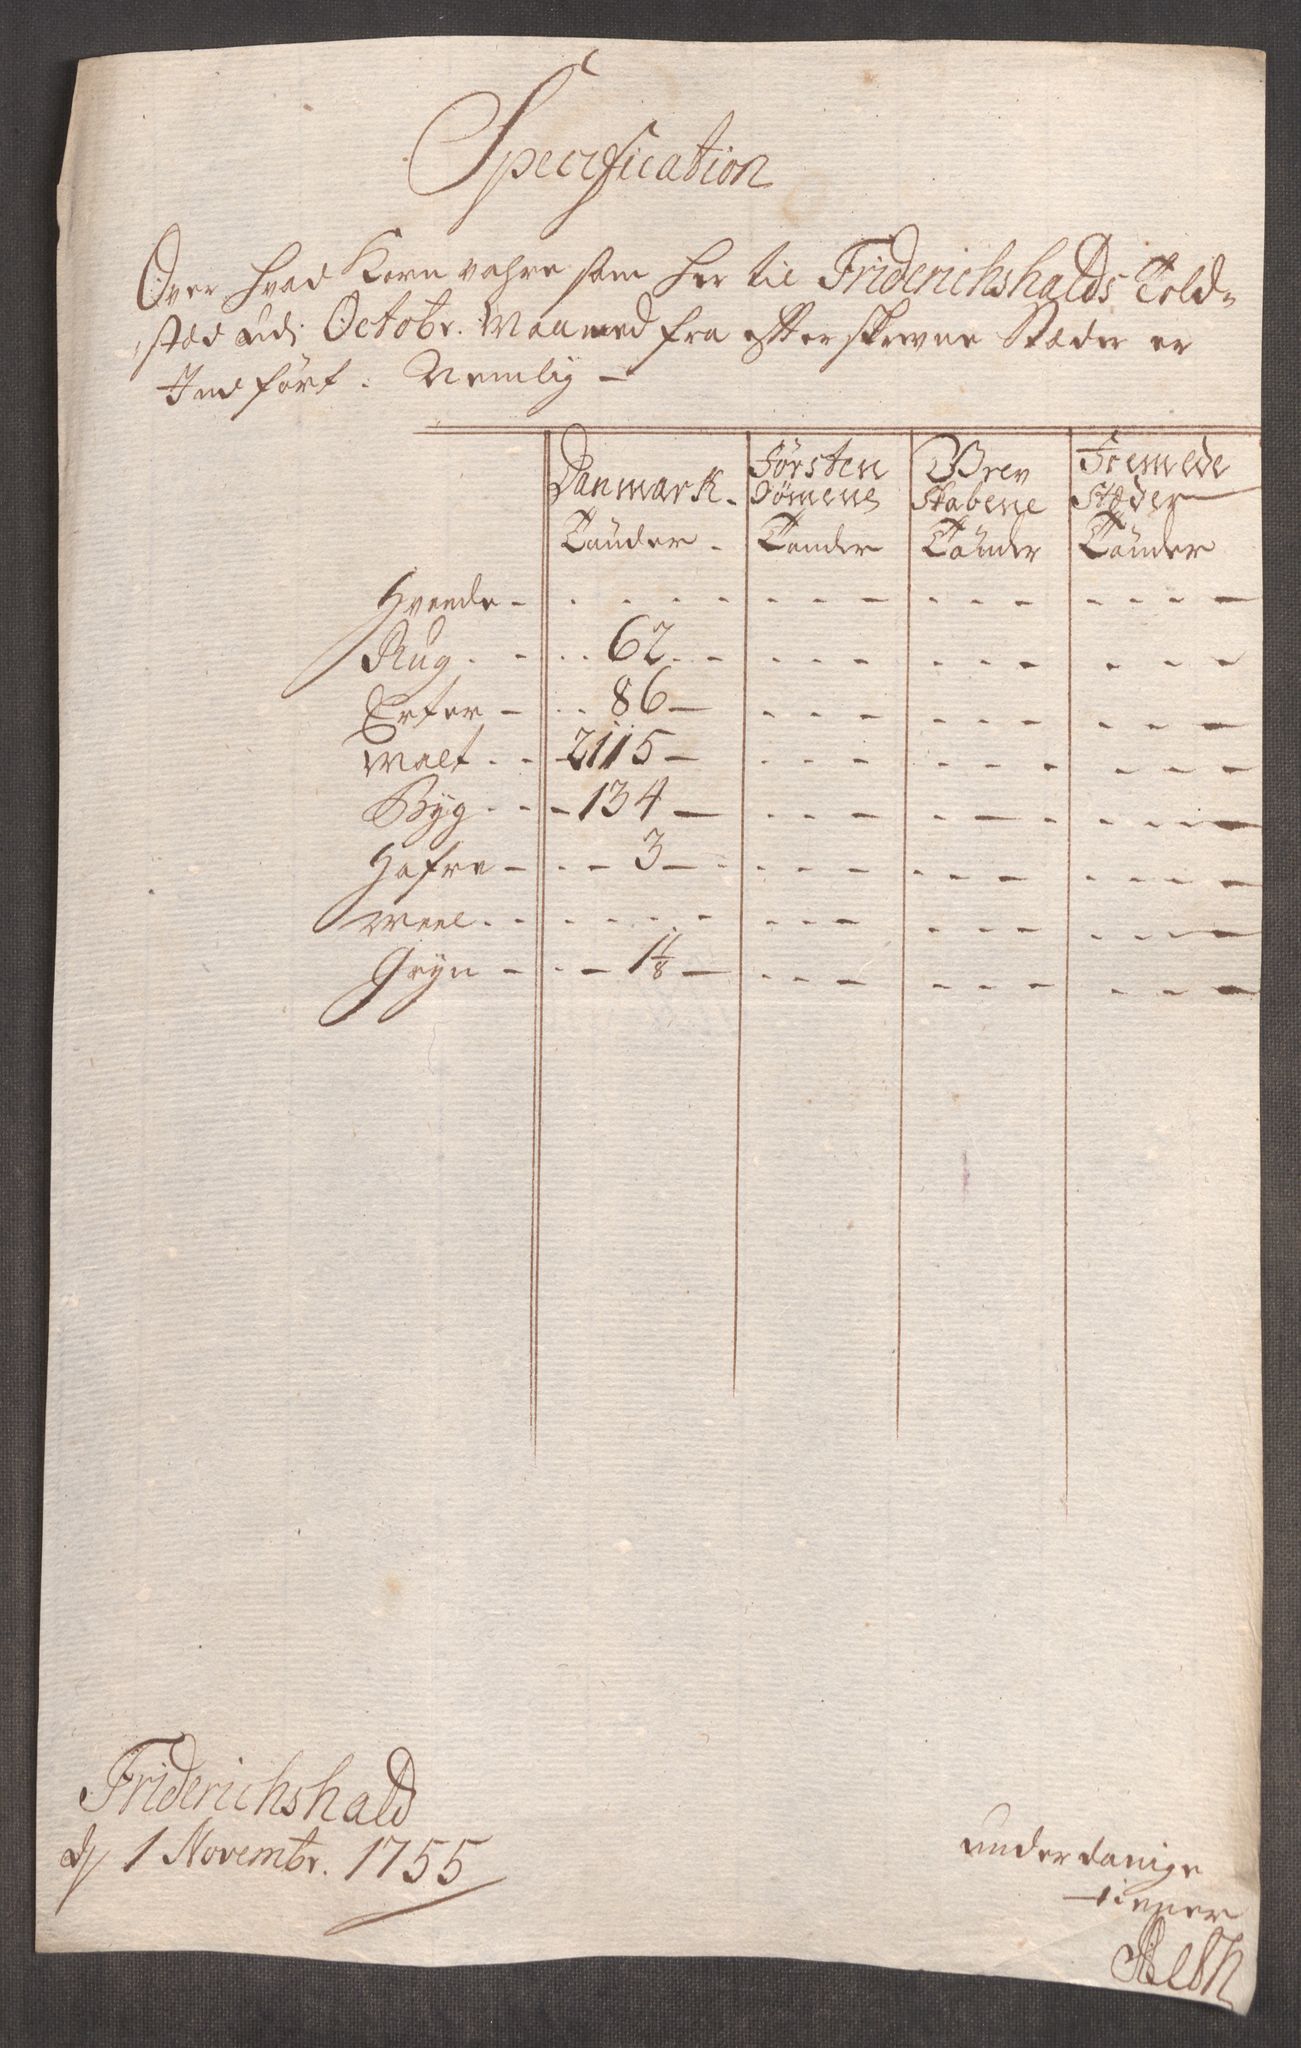 Specification
Over hvad Korn vahre som her til Friderichshalds Told-
stæd udi Octobr. Maaned fra efterskrevne Stæder er
Indført. Nemlig -
Danmark. Førsten Grev Fremede
dømene skabene Stæder
Tønder. Tønder Tønder Tønder
Hvede - . . . . - - - - - - - - - - -
Rug . - . . 62 . . - - - - - - - - - -
Erter - . . 86 - - - - - - - - - - -
Malt . . - 2115 - - - - - - - - - - -
Byg . - - 134 - - - - - - - - - - -
Hafre - . . - 3 - - - - - - - - - - -
Meel . . . . . . - - - - - - - - - - -
Gryn - . . - 1 1/8 - - - - - - - - - - -
Friderichshald
d 1 Novembr. 1755
underdanige
tienner